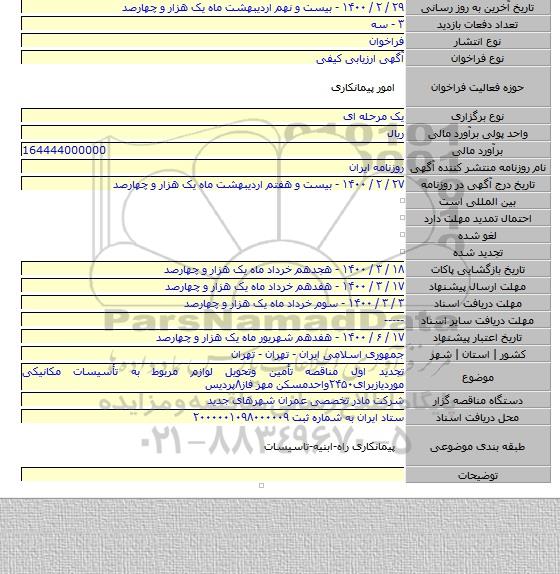 تاریخ آخرین به روز رسانی ۲۹ / ۲ / ۱۴۰۰ - بیست و نهم اردیبهشت ماه یک هزار و چهارصد
تعداد دفعات بازدید ۳ - سه
نوع انتشار فراخوان
نوع فراخوان آگهی ارزیابی کیفی
حوزه فعالیت فراخوان امور پیمانکاری
نوع برگزاری یک مرحله ای
واحد پولی برآورد مالی ریال
برآورد مالی 164444000000
نام روزنامه منتشر کننده آگهی روزنامه ایران
تاریخ درج آگهی در روزنامه ۲۷ / ۲ / ۱۴۰۰ - بیست و هفتم اردیبهشت ماه یک هزار و چهارصد
بین المللی است
احتمال تمدید مهلت دارد
لغو شده
تجدید شده
تاریخ بازگشایی پاکات ۱۸ / ۳ / ۱۴۰۰ - هجدهم خرداد ماه یک هزار و چهارصد
مهلت ارسال پیشنهاد ۱۷ / ۳ / ۱۴۰۰ - هفدهم خرداد ماه یک هزار و چهارصد
مهلت دریافت اسناد ۳ / ۳ / ۱۴۰۰ - سوم خرداد ماه یک هزار و چهارصد
مهلت دریافت سایر اسناد -----
تاریخ اعتبار پیشنهاد ۱۷ / ۶ / ۱۴۰۰ - هفدهم شهریور ماه یک هزار و چهارصد
کشور | استان | شهر جمهوری اسلامی ایران - تهران - تهران
موضوع تجدید اول مناقصه تأمین وتحویل لوازم مربوط به تأسیسات مکانیکی
موردنیازبرای۲۴۵۰واحدمسکن مهر فاز۸پردیس
دستگاه مناقصه گزار شرکت مادر تخصصی عمران شهرهای جدید
محل دریافت اسناد ستاد ایران به شماره ثبت ۲۰۰۰۰۰۱۰۹۸۰۰۰۰۰۹
طبقه بندی موضوعی پیمانکاری راه-ابنیه-تاسیسات
توضیحات
ParsNamadData
۰۲۱-۸۸۳۴۹۶۷۰-۵